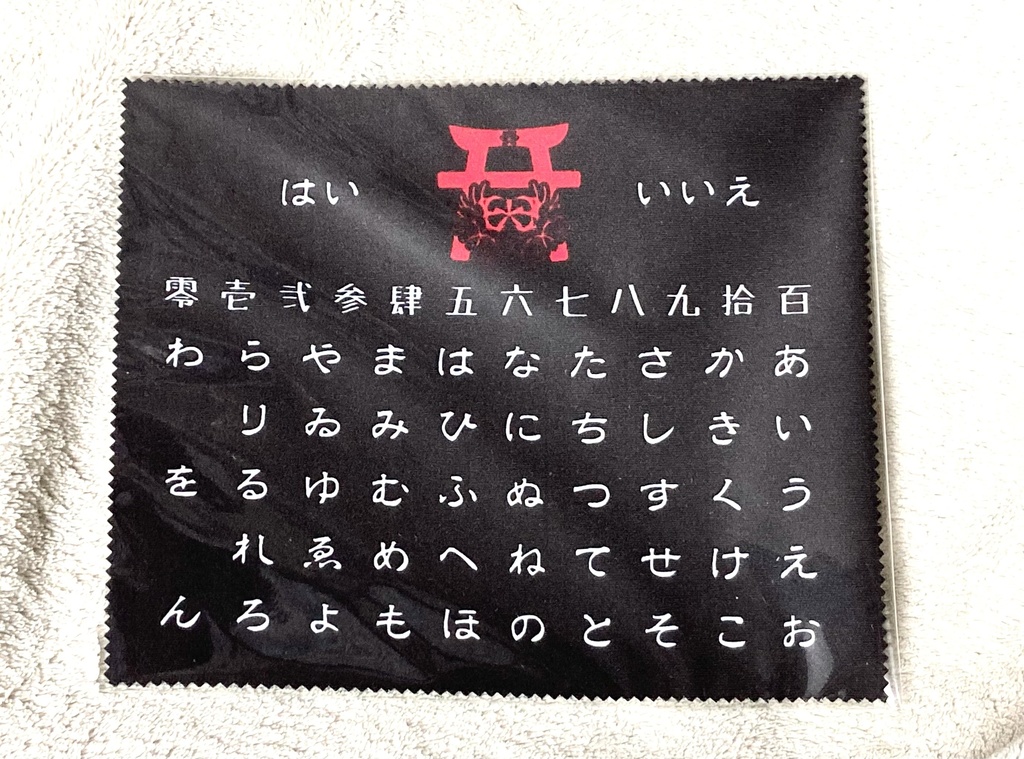 はい いいえ
零壱弐参肆五六七八九拾百
わらやまはなたさかあ
りゐみひにちしきい
をるゆむふぬつすくう
れゑめへねてせけえ
んろよもほのとそこお